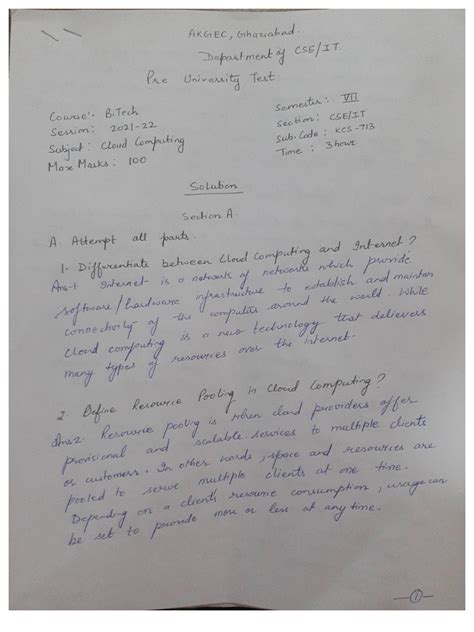 AKGEC, Ghaziabad.
Department of CSE/IT.
Pre University Test.
Course:- B.Tech
Semester: VII
Session: 2021-22
Section: CSE/IT
Subject: Cloud Computing
Sub. Code: KCS-713
Max Marks: 100
Time: 3 hour
Solution
Section A.
A. Attempt all parts.
1. Differentiate between Cloud Computing and Internet?
Ans-1 Internet is a network of networks which provide
software/hardware infrastructure to establish and maintain
connectivity of the computers around the world. While
cloud computing is a new technology that delievers
many types of resources over the internet.
2. Define Resource Pooling in Cloud Computing?
Ans2. Resource pooling is when cloud providers offer
provisional and scalable services to multiple clients
or customers. In other words, space and resources are
pooled to serve multiple clients at one time.
Depending on a clients resource consumption, usage can
be set to provide more or less at any time.
1